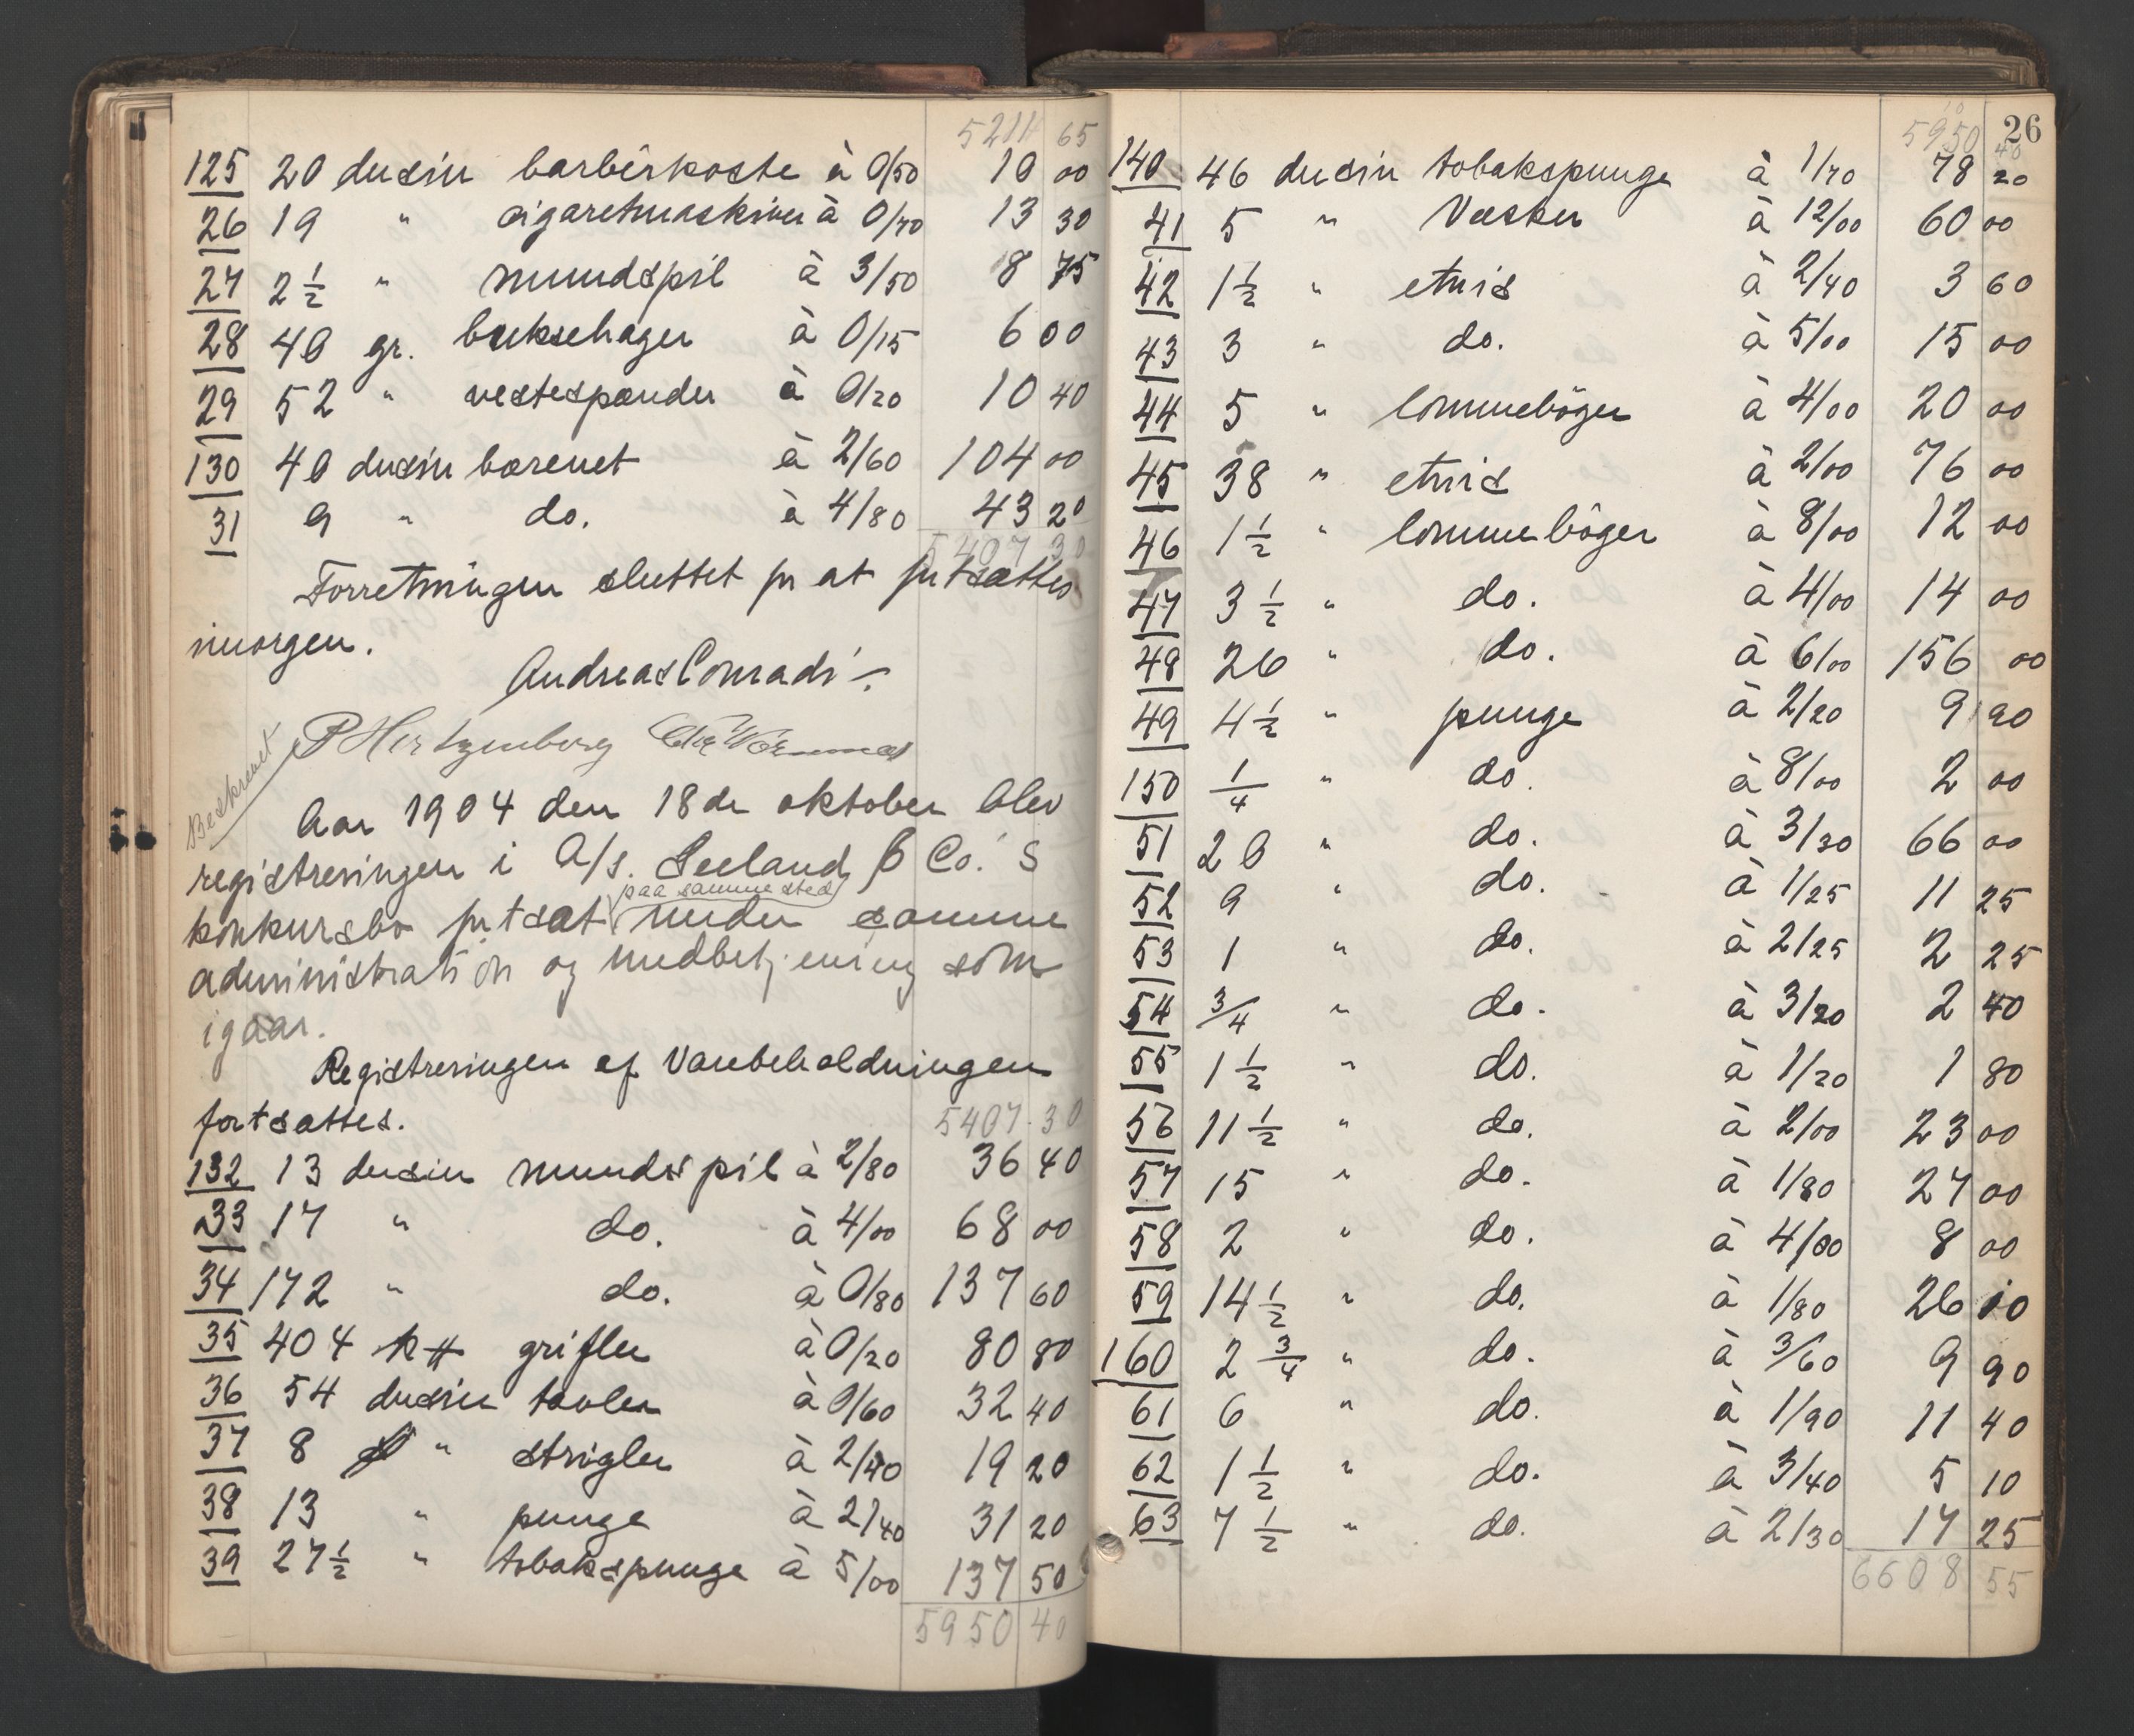 5211 65
125 20 dusin barbérkoste à 0/50 10 00
26 19 " cigaretmaskiner à 0/70 13 30
27 2 1/2 " mundspil à 3/50 8 75
28 40 gr. buksehager à 0/15 6 00
29 52 " vestespænder à 0/20 10 40
130 40 dusin barenet à 2/60 104 00
31 9 " do. à 4/80 43 20
5407 30
Forretningen sluttet for at fortsættes
imorgen.
Andreas Conradi
P Hertzenberg
Beskrevet
Aar 1904 den 18de oktober blev
registreringen i A/s. Seeland & Co.'s
paa samme sted
konkursbo fortsat under samme
administration og medbetjening som
igaar.
Registreringen af Varebeholdningen
fortsattes.
5407.30
132 13 dusin mundspil à 2/80 36 40
33 17 " do. à 4/00 68 00
34 172 " do. à 0/80 137 60
35 404 grifler à 0/20 80 80
36 54 dusin tavler à 0/60 32 40
37 8 " strigler à 2/40 19 20
38 13 " punge à 2/40 31 20
39 27 1/2 " tobakspunge à 5/00 137 50
5950 40
26
5950 40
140 46 dusin tobakspunge à 1/70 78 20
41 5 " Væsker à 12/00 60 00
42 1 1/2 " etuis à 2/40 3 60
43 3 " do. à 5/00 15 00
44 5 " lommebøger à 4/00 20 00
45 38 " etuis à 2/00 76 00
46 1 1/2 " lommebøger à 8/00 12 00
47 3 1/2 " do. à 4/00 14 00
48 26 " do. à 6/00 156 00
49 4 1/2 " punge à 2/20 9 90
150 1/4 " do. à 8/00 2 00
51 20 " do. à 3/30 66 00
52 9 " do. à 1/25 11 25
53 1 " do. à 2/25 2 25
54 3/4 " do. à 3/20 2 40
55 1 1/2 " do. à 1/20 1 80
56 11 1/2 " do. à 2/00 23 00
57 15 " do. à 1/80 27 00
58 2 " do. à 4/00 8 00
59 14 1/2 " do. à 1/80 26 10
160 2 3/4 " do. à 3/60 9 90
61 6 " do. à 1/90 11 40
62 1 1/2 " do. à 3/40 5 10
63 7 1/2 " do. à 2/30 17 25
6608 55